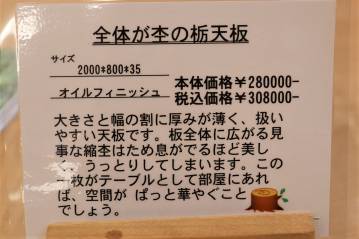 全体が杢の栃天板
サイズ
2000*800*35
オイルフィニッシュ
本体価格￥280000-
税込価格￥308000-
大きさと幅の割に厚みが薄く、扱い
やすい天板です。板全体に広がる見
事な縮杢はため息がでるほど美し
く、うっとりしてしまいます。この
一枚がテーブルとして部屋にあれ
ば、空間が ぱっと華やぐこと
でしょう。